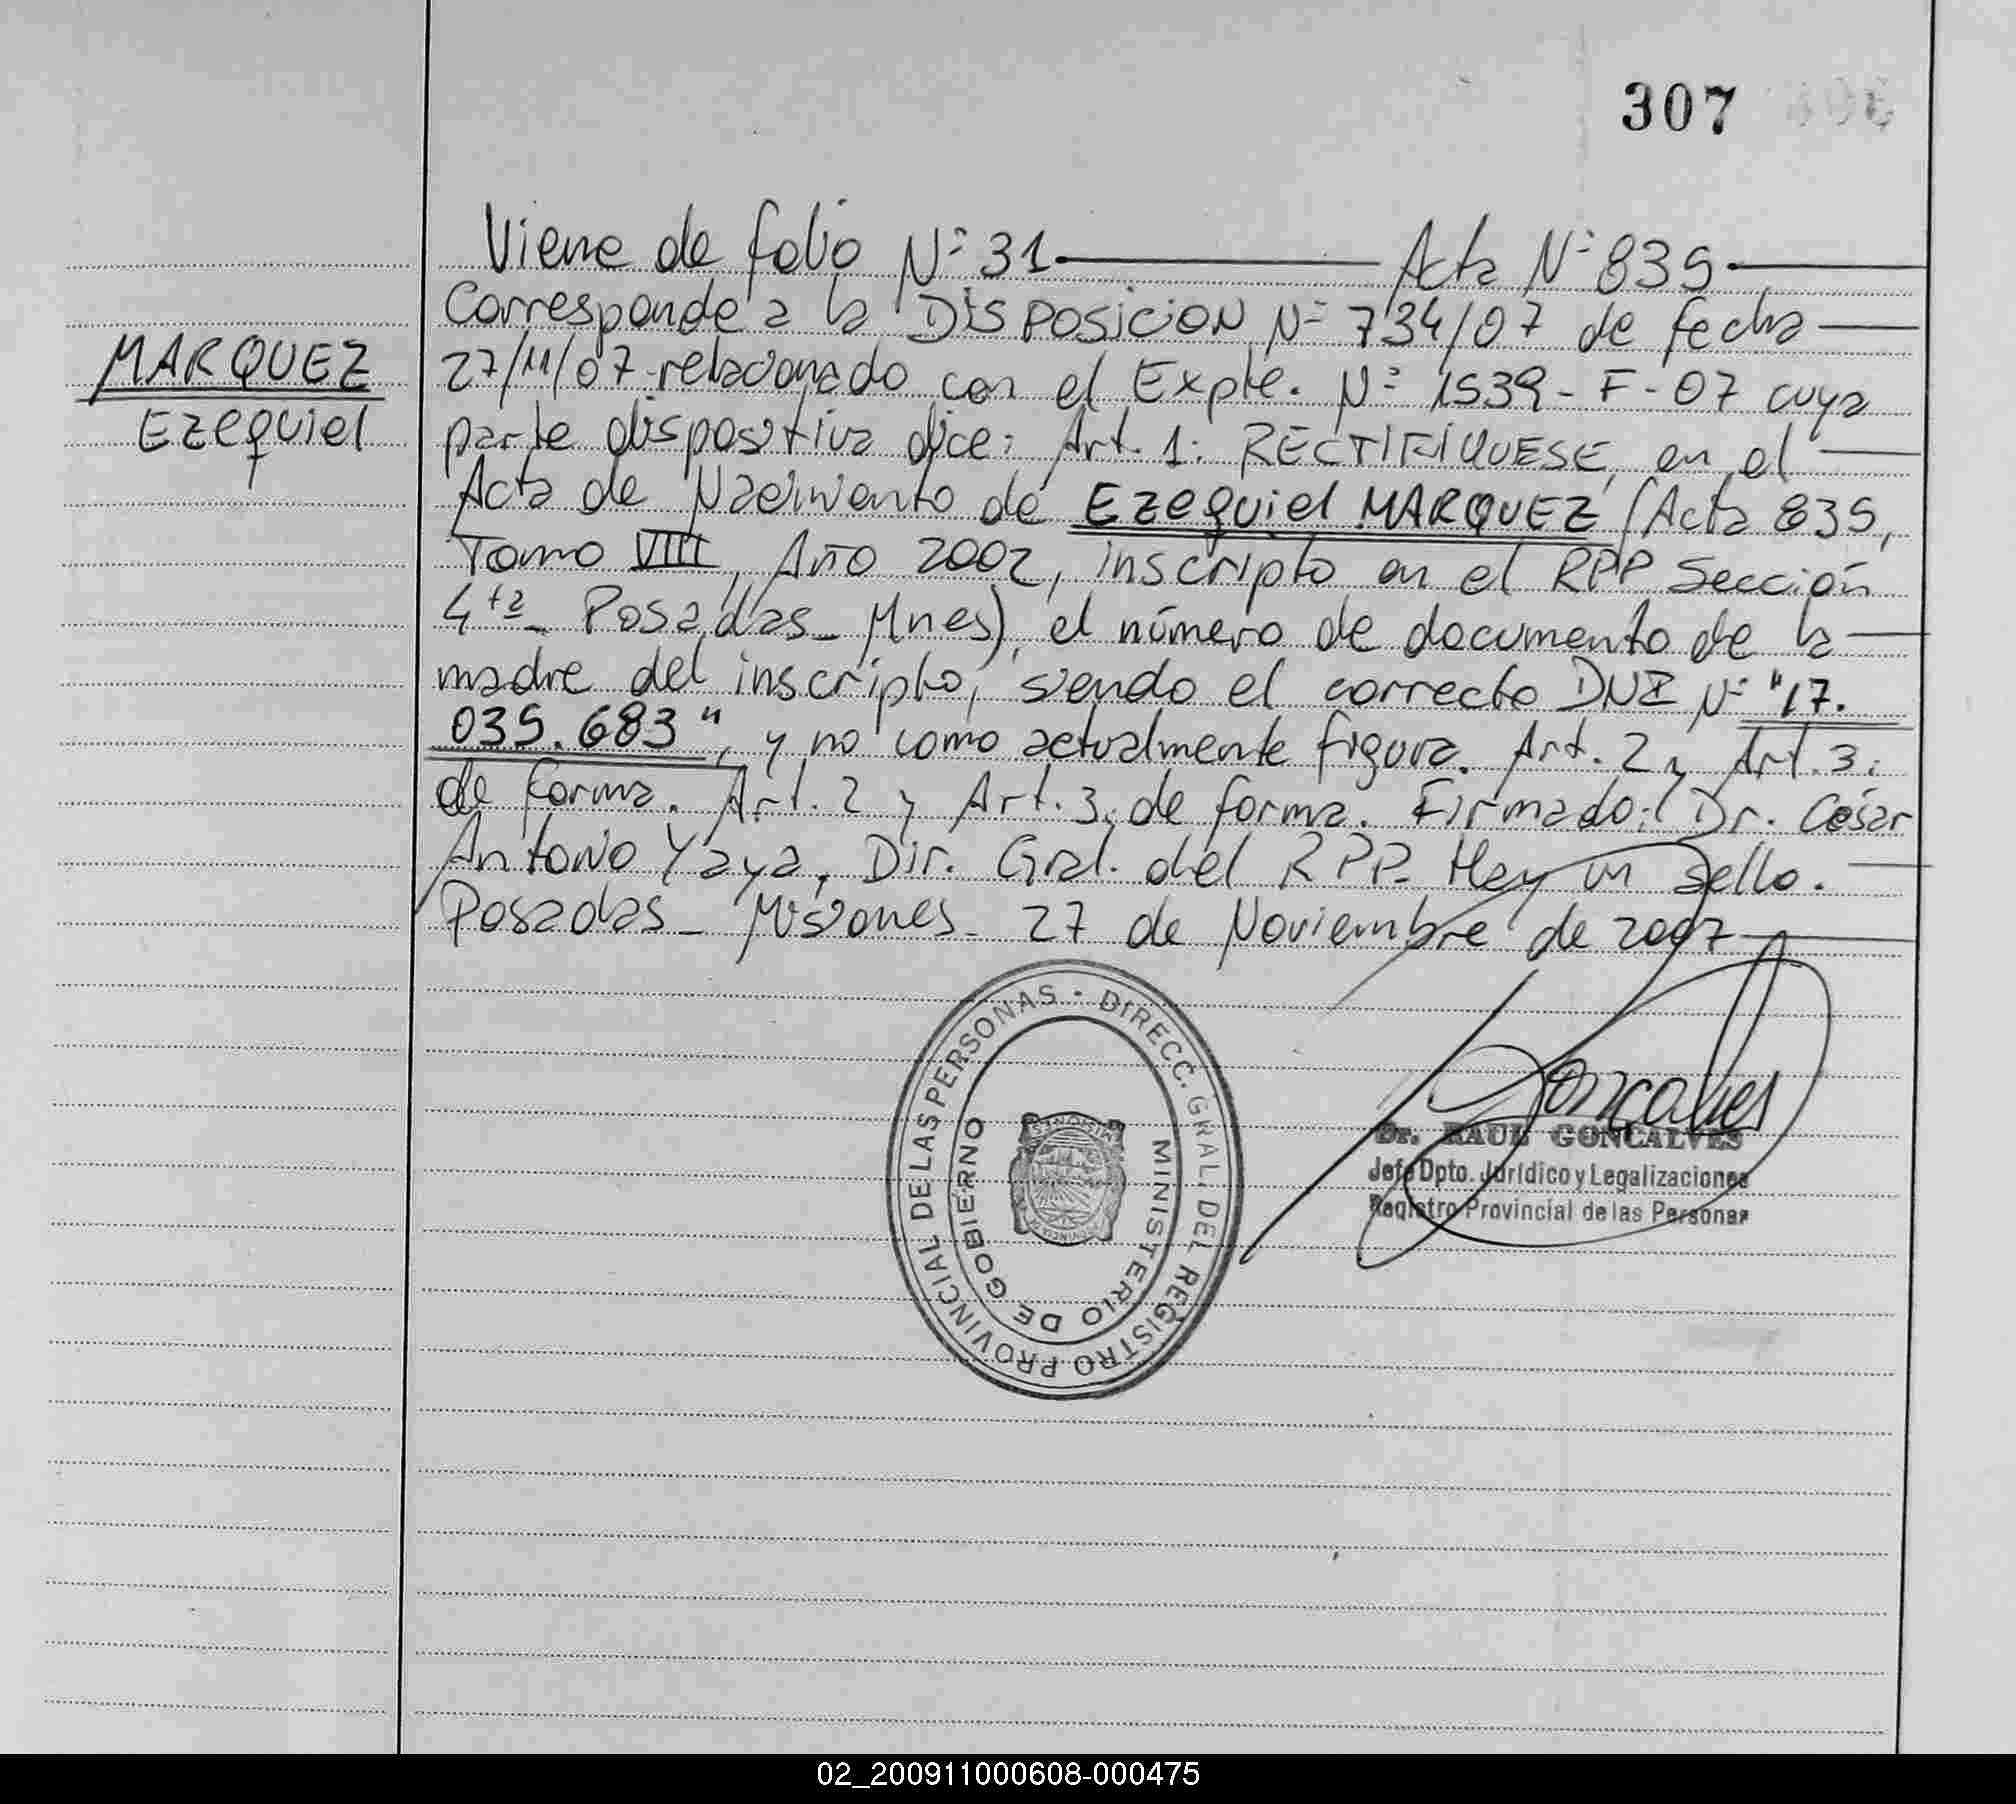 307
Viene de folio Nº 31 Acta Nº 835
Corresponde a la DISPOSICION Nº 734/07 de fecha
MARQUEZ
Ezequiel
27/11/07 relacionado con el Expte. Nº 1539-F-07 cuya
parte dispositiva dice: Art. 1: RECTIFIQUESE, en el
Acta de Nacimiento de Ezequiel MARQUEZ (Acta 835,
Tomo VIII, Año 2002, inscripto en el RPP Sección
4ta_ Posadas_ Mnes), el número de documento de la
madre del inscripto, siendo el correcto DNI Nº "17.
035.683", y no como actualmente figura. Art. 2 y Art. 3:
de forma. Art. 2 y Art. 3: de forma. Firmado: Dr. César
Antonio Yaya, Dir. Gral. del RPP. Hay un sello.
Posadas_ Misiones_ 27 de Noviembre de 2007
DIRECC. GRAL. DEL REGISTRO PROVINCIAL DE LAS PERSONAS
MINISTERIO DE GOBIERNO
Goncalves
Dr. RAUL GONCALVES
Jefe Dpto. Jurídico y Legalizaciones
Registro Provincial de las Personas
02_200911000608-000475